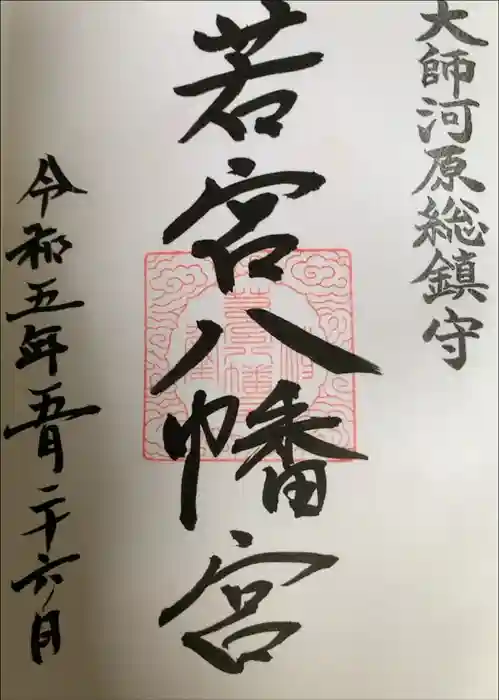 大師河原総鎮守
若宮八幡宮
令和五年五月二十六日